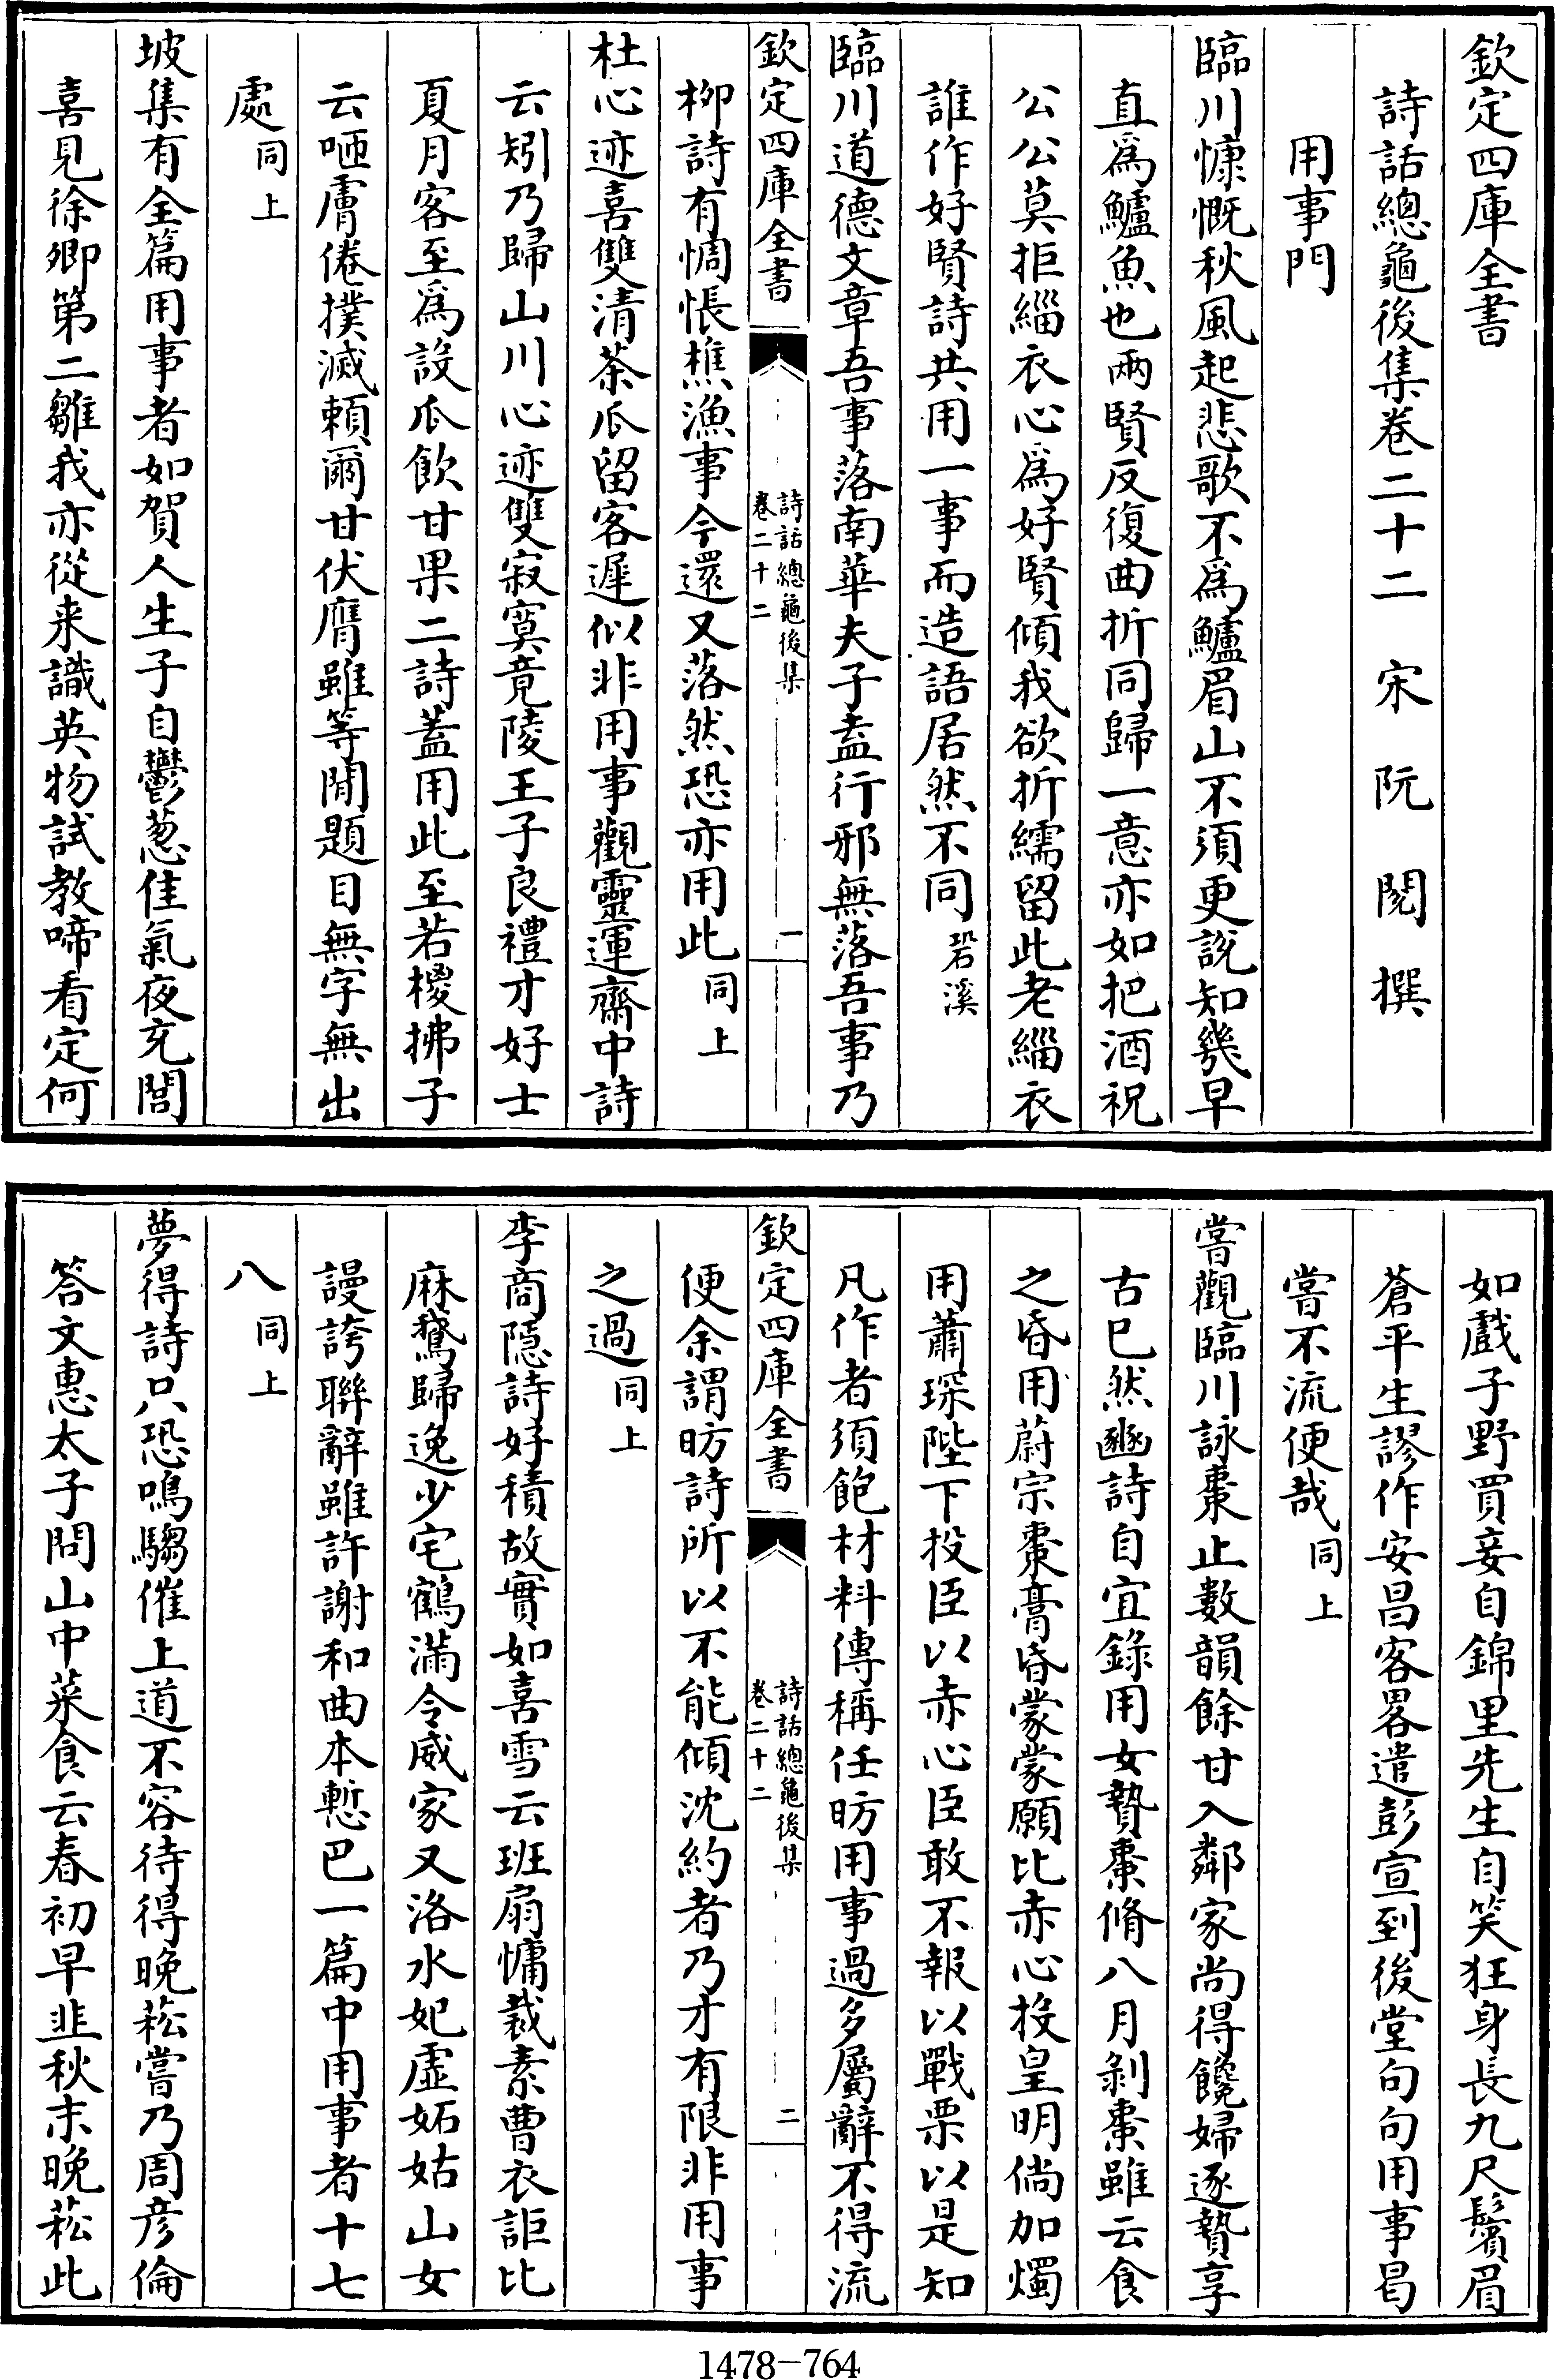 欽定四庫全書
詩話總龜後集卷二十二　宋　阮　閱　撰
用事門
臨川慷慨秋風起悲歌不爲鱸眉山不須更說知幾早
直爲鱸魚也兩賢反復曲折同歸一意亦如把酒祝
公公莫拒緇衣心爲好賢傾我欲折繻留此老緇衣
誰作好賢詩共用一事而造語居然不同䂬溪
臨川道德文章吾事落南華夫子盍行邪無落吾事乃
欽定四庫全書
詩話總龜後集
卷二十二
一
栁詩有惆悵樵漁事今還又落然恐亦用此同上
杜心迹喜雙清茶瓜留客遲似非用事觀靈運齋中詩
云矧乃歸山川心迹雙寂寞竟陵王子良禮才好士
夏月客至爲設瓜飲甘果二詩蓋用此至若椶拂子
云咂膚倦撲滅頼爾甘伏膺雖等閒題目無字無出
處同上
坡集有全篇用事者如賀人生子自鬱葱佳氣夜充閭
喜見徐卿第二雛我亦從来識英物試教啼看定何
如戲子野買妾自錦里先生自笑狂身長九尺鬢眉
蒼平生謬作安昌客畧遣彭宣到後堂句句用事曷
嘗不流便哉同上
嘗觀臨川詠棗止數韻餘甘入鄰家尚得饞婦逐贄享
古已然豳詩自宜錄用女贄棗脩八月剝棗雖云食
之昏用蔚宗棗膏昏蒙蒙願比赤心投皇明倘加燭
用蕭琛陛下投臣以赤心臣敢不報以戰栗以是知
凡作者須飽材料傳稱任昉用事過多屬辭不得流
欽定四庫全書
詩話總龜後集
卷二十二
二
便余謂昉詩所以不能傾沈約者乃才有限非用事
之過同上
李商隱詩好積故實如喜雪云班扇慵裁素曹衣詎比
麻鵞歸逸少宅鶴滿令威家又洛水妃虛妬姑山女
謾誇聯辭雖許謝和曲本慙巴一篇中用事者十七
八同上
夢得詩只恐鳴騶催上道不容待得晚菘嘗乃周彦倫
答文惠太子問山中菜食云春初早韭秋末晚菘此
1478—764